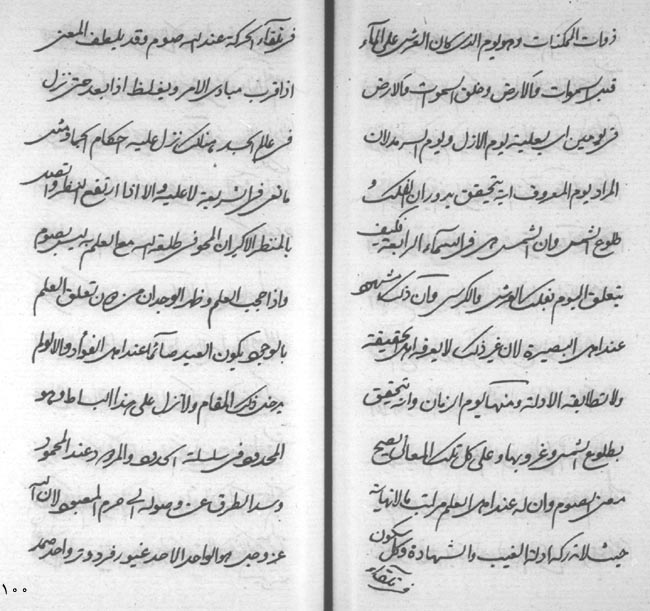 ذوات الممكنات وهو يوم الذى كان العرش على الماء
قبل السموات والارض وخلق السموات والارض
فى يومين اى بعلية يوم الازل ويوم السرمد لان
المراد يوم المعروف انه يتحقق بدوران الفلك و
طلوع الشمس وان الشمس هى فى السماء الرابعة فكيف
يتعلق اليوم بفلك العرش والكرسى وان ذلك مشهود
عند اهل البصيرة لان غير ذلك لا يعرفه اهل الحقيقة
ولا تطابقه الادلة ومنها يوم الزمان وانه يتحقق
بطلوع الشمس وغروبها وعلى كل تلك المعانى يصح
معنى الصوم وان له عند اهل العلم مراتب مالانهاية
حيث لا تدركه ادلة الغيب والشهادة وكل يكون
فى تلقاء
فى تلقاء الحركة عند الله صوم وقد يلطف المعنى
اذا قرب مبادى الامر ويغلظ اذا بعد حتى نزل
فى عالم الجسد هنالك نزل عليه احكام الحدود مثل
ما نص فى الشريعة لا عليه والا اذا ارتفع
بالمنظر الاكبر ان المحو فى طلعة الله مع العلم به ليس بصوم
واذا حجب العلم وظهر الوجدان من دون تعلق العلم
بالوجود يكون العبد صائما عند اهل الفؤاد والا لو لم
يرض ذلك المقام ولا نزل على هذا البساط وهو
المحدود فى سلسلة الحدود والمردود عند المحمود
وسد الطرق عن وصوله الى حرم المعبود لان الله
عز وجل هو الواحد الاحد غيور فرد وتر واحد صمد
١٠٠